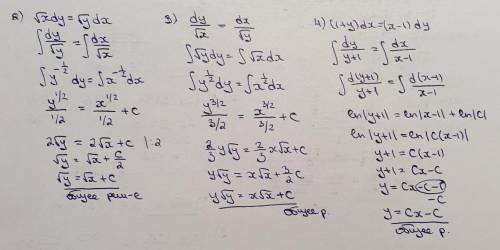 2) √x dy = √y dx
∫ dy/√y = ∫ dx/√x
∫ y^(-1/2) dy = ∫ x^(-1/2) dx
y^(1/2)/(1/2) = x^(1/2)/(1/2) + C
2√y = 2√x + C |:2
√y = √x + C/2
√y = √x + C
общее реш-е
3) dy/√x = dx/√y
∫ √y dy = ∫ √x dx
∫ y^(1/2) dy = ∫ x^(1/2) dx
y^(3/2)/(3/2) = x^(3/2)/(3/2) + C
2/3 y√y = 2/3 x√x + C
y√y = x√x + 3/2 C
y√y = x√x + C
общее р.
4) (1+y) dx = (x-1) dy
∫ dy/(y+1) = ∫ dx/(x-1)
∫ d(y+1)/(y+1) = ∫ d(x-1)/(x-1)
ln|y+1| = ln|x-1| + ln|C|
ln|y+1| = ln|C(x-1)|
y+1 = C(x-1)
y+1 = Cx-C
y = Cx-C-1
-C
y = Cx-C
общее р.